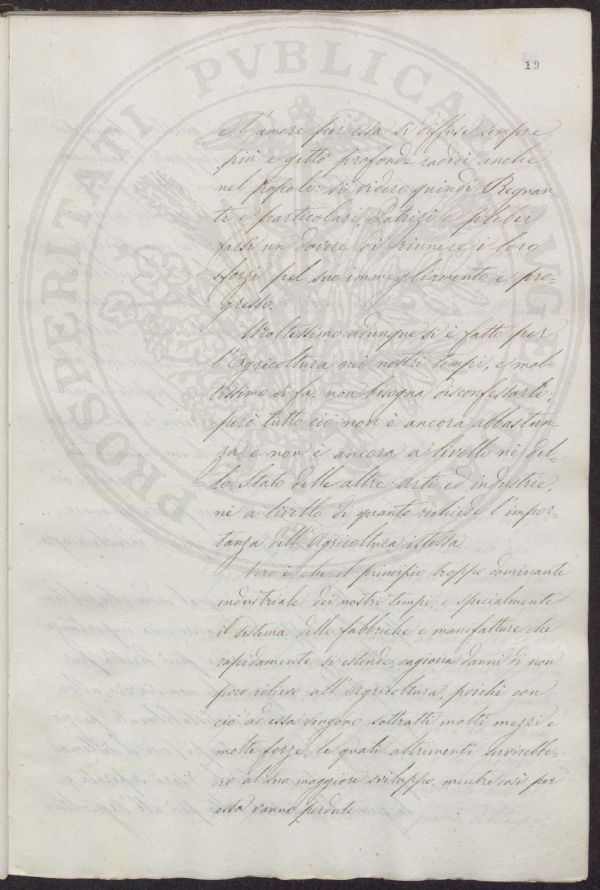 19
e l'amore per essa si diffuse sempre
più e gettò profonde radici anche
nel popolo: si videro quindi Regnan-
ti e particolari, Patrizi e plebei
farsi un dovere di riunire i loro
sforzi pel suo immegliamento e pro-
gresso.
Moltissimo adunque si è fatto per
l'Agricoltura nei nostri tempi, e mol-
tissimo si fa, non bisogna disconfessarlo;
però tutto ciò non è ancora abbastan-
za e non è ancora a livello nè del-
lo Stato delle altre arti ed industrie,
nè a livello di quanto richiede l'impor-
tanza dell'Agricoltura istessa.
Vero è che il principio troppo dominante
industriale dei nostri tempi, e specialmente
il sistema delle fabbriche e manifatture che
rapidamente si estende, cagiona danni di non
poco rilievo all'Agricoltura, poichè con
ciò ad essa vengono sottratti molti mezzi e
molte forze, le quali altrimenti servirebbe-
ro al suo maggiore sviluppo, mentre così per
essa vanno perdute
PROSPERITATI PUBLICAE AUG